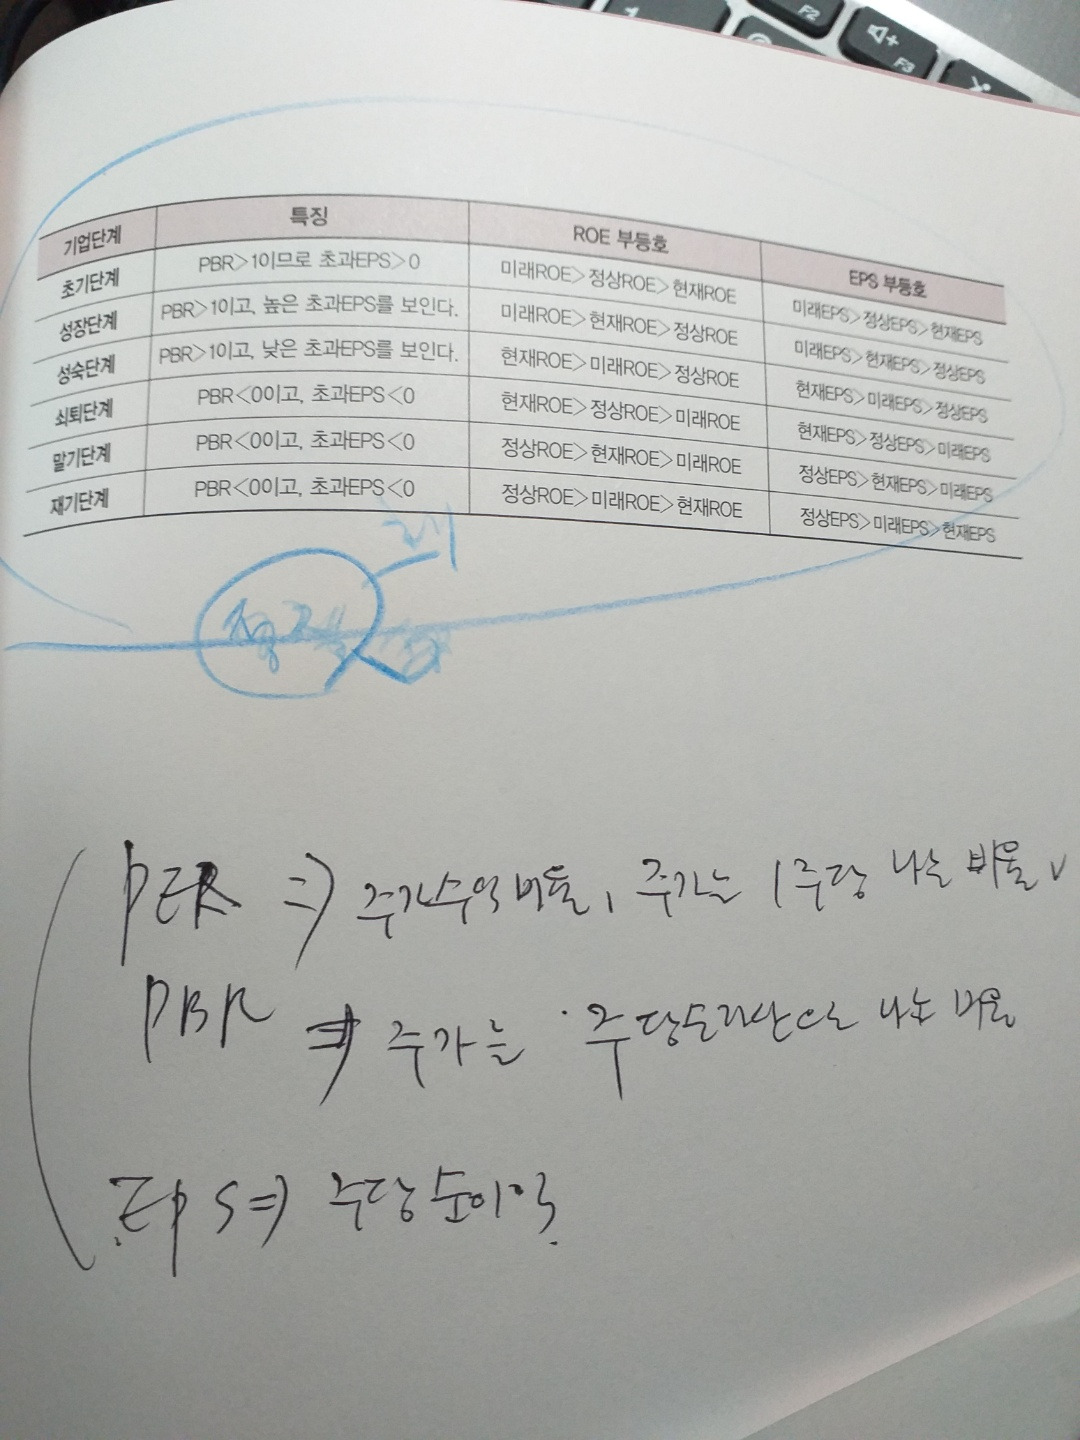 F2
F3
기업단계 특징 ROE 부등호 EPS 부등호
초기단계 PBR>1이므로 초과EPS>0 미래ROE>정상ROE>현재ROE 미래EPS>정상EPS>현재EPS
성장단계 PBR>1이고, 높은 초과EPS를 보인다. 미래ROE>현재ROE>정상ROE 미래EPS>현재EPS>정상EPS
성숙단계 PBR>1이고, 낮은 초과EPS를 보인다. 현재ROE>미래ROE>정상ROE 현재EPS>미래EPS>정상EPS
쇠퇴단계 PBR<0이고, 초과EPS<0 현재ROE>정상ROE>미래ROE 현재EPS>정상EPS>미래EPS
말기단계 PBR<0이고, 초과EPS<0 정상ROE>현재ROE>미래ROE 정상EPS>현재EPS>미래EPS
재기단계 PBR<0이고, 초과EPS<0 정상ROE>미래ROE>현재ROE 정상EPS>미래EPS>현재EPS
PER ⇒ 주가수익비율, 주가는 1주당 나눈 비율
PBR ⇒ 주가는 주당순자산으로 나눈 비율
EPS ⇒ 주당 순이익.